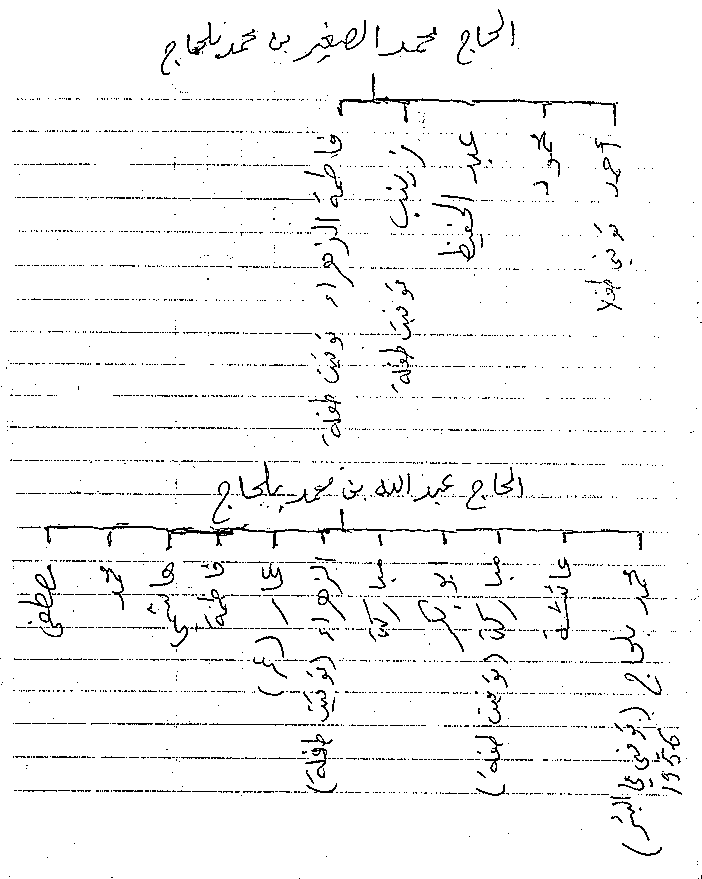 الحاج محمد الصغير بن محمد بلحاج
أحمد توفي طفلا
حمود
عبد الحفيظ
زينب توفيت طفلة
فاطمة الزهراء توفيت طفلة
الحاج عبد الله بن محمد بلحاج
محمد بلحاج (توفي في البئر) 1956
عائشة
مباركة (توفيت طفلة)
ابو بكر
مباركة
الزهراء (توفيت طفلة)
عمار (عمر)
فاطمة
هاشمي
محمد
مصطفى